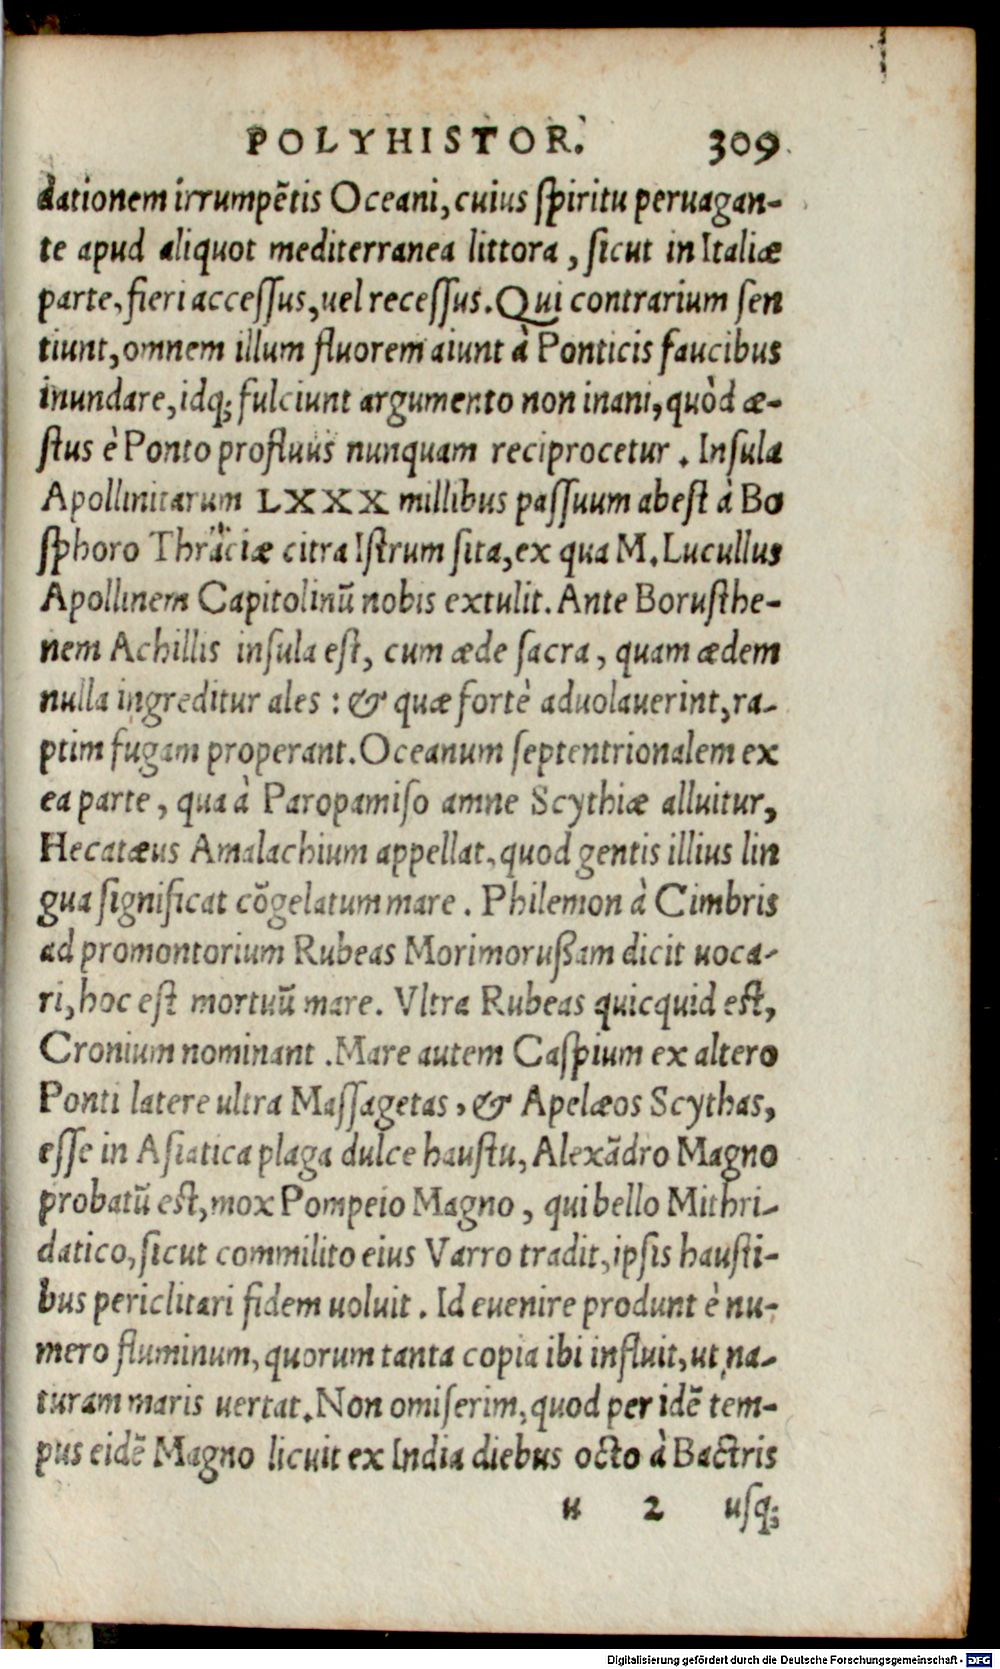 POLYHISTOR. 309
dationem irrumpētis Oceani, cuius ſpiritu peruagan-
te apud aliquot mediterranea littora, ſicut in Italiæ
parte, fieri acceſſus, uel receſſus. Qui contrarium ſen
tiunt, omnem illum fluorem aiunt à Ponticis faucibus
inundare, idq; fulciunt argumento non inani, quòd æ-
ſtus è Ponto profluus nunquam reciprocetur. Inſula
Apollinitarum LXXX millibus paſſuum abeſt à Bo
ſphoro Thraciæ citra Iſtrum ſita, ex qua M. Lucullus
Apollinem Capitolinū nobis extulit. Ante Boruſthe-
nem Achillis inſula eſt, cum æde ſacra, quam ædem
nulla ingreditur ales: & quæ fortè aduolauerint, ra-
ptim fugam properant. Oceanum ſeptentrionalem ex
ea parte, qua à Paropamiſo amne Scythiæ alluitur,
Hecatæus Amalachium appellat, quod gentis illius lin
gua ſignificat cōgelatum mare. Philemon à Cimbris
ad promontorium Rubeas Morimorußam dicit uoca-
ri, hoc eſt mortuū mare. Vltra Rubeas quicquid eſt,
Cronium nominant. Mare autem Caſpium ex altero
Ponti latere ultra Maſſagetas, & Apelæos Scythas,
eſſe in Aſiatica plaga dulce hauſtu, Alexādro Magno
probatū eſt, mox Pompeio Magno, qui bello Mithri-
datico, ſicut commilito eius Varro tradit, ipſis hauſti-
bus periclitari fidem uoluit. Id euenire produnt è nu-
mero fluminum, quorum tanta copia ibi influit, ut na-
turam maris uertat. Non omiſerim, quod per idē tem-
pus eidē Magno licuit ex India diebus octo à Bactris
u 2 uſq;
Digitalisierung gefördert durch die Deutsche Forschungsgemeinschaft - DFG